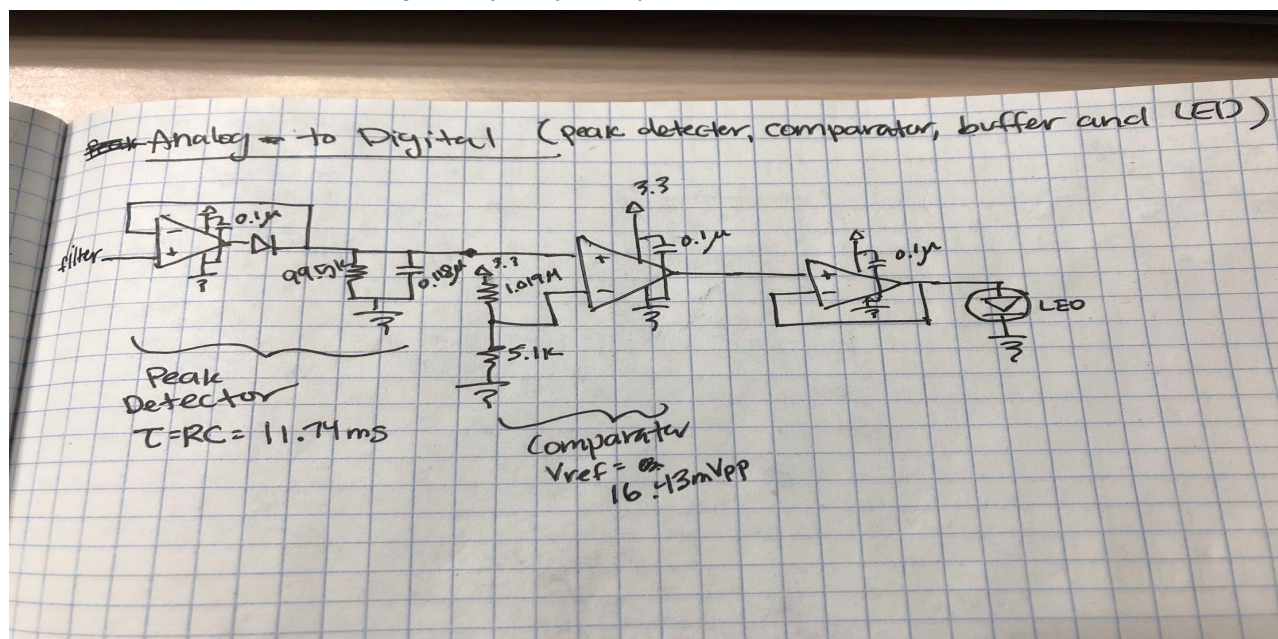 Analog - to Digital (peak detector, comparator, buffer and LED)
3.3
0.1μ
0.1μ
0.1μ
filter
-
+
+
-
+
-
99.5k
0.118μ
3.3
1.019M
5.1K
LED
Peak
Detector
τ=RC= 11.74ms
Comparator
Vref =
16.43mVpp